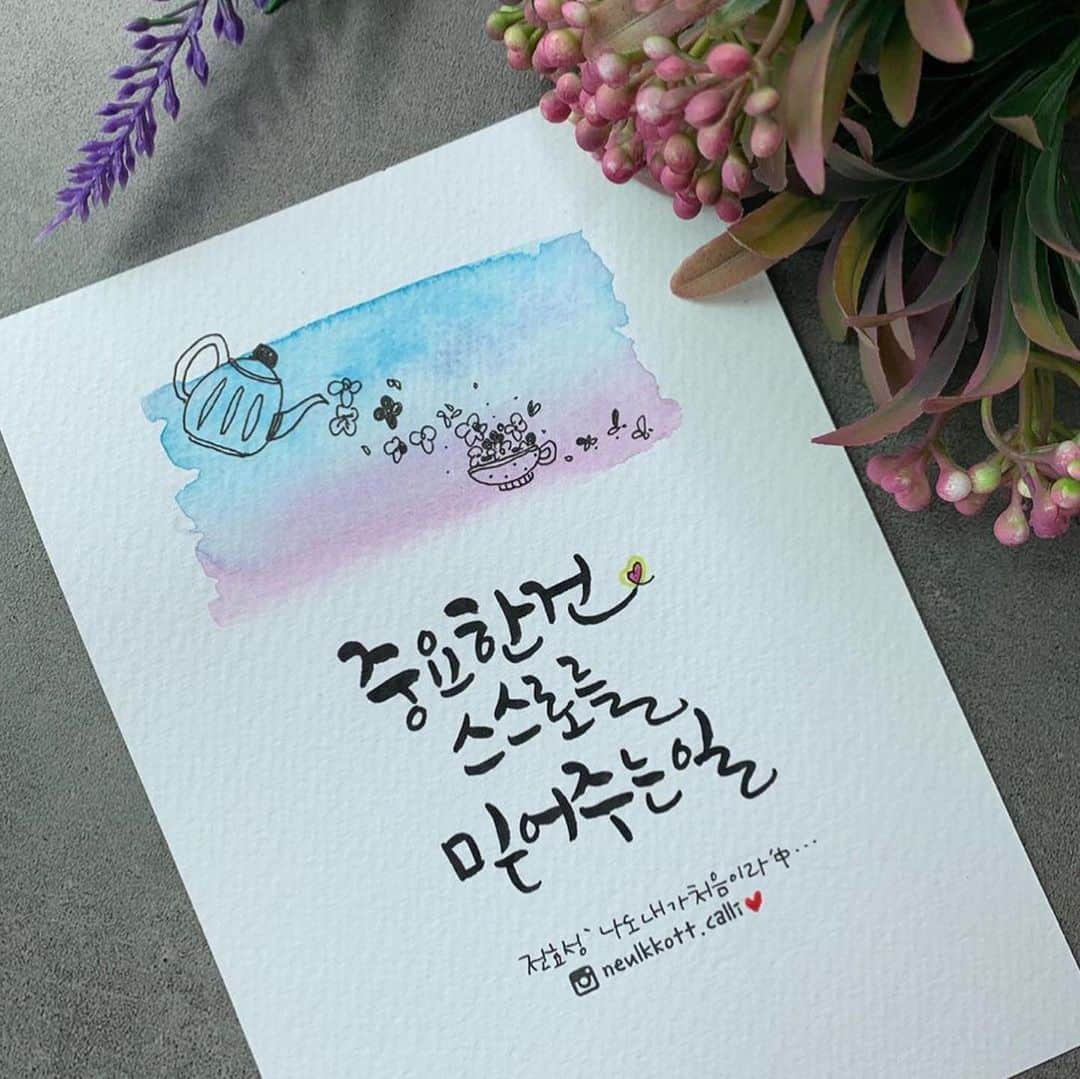 중요한건
스스로를
믿어주는일
전효성`나도내가처음이라'中...
neulkkott.calli